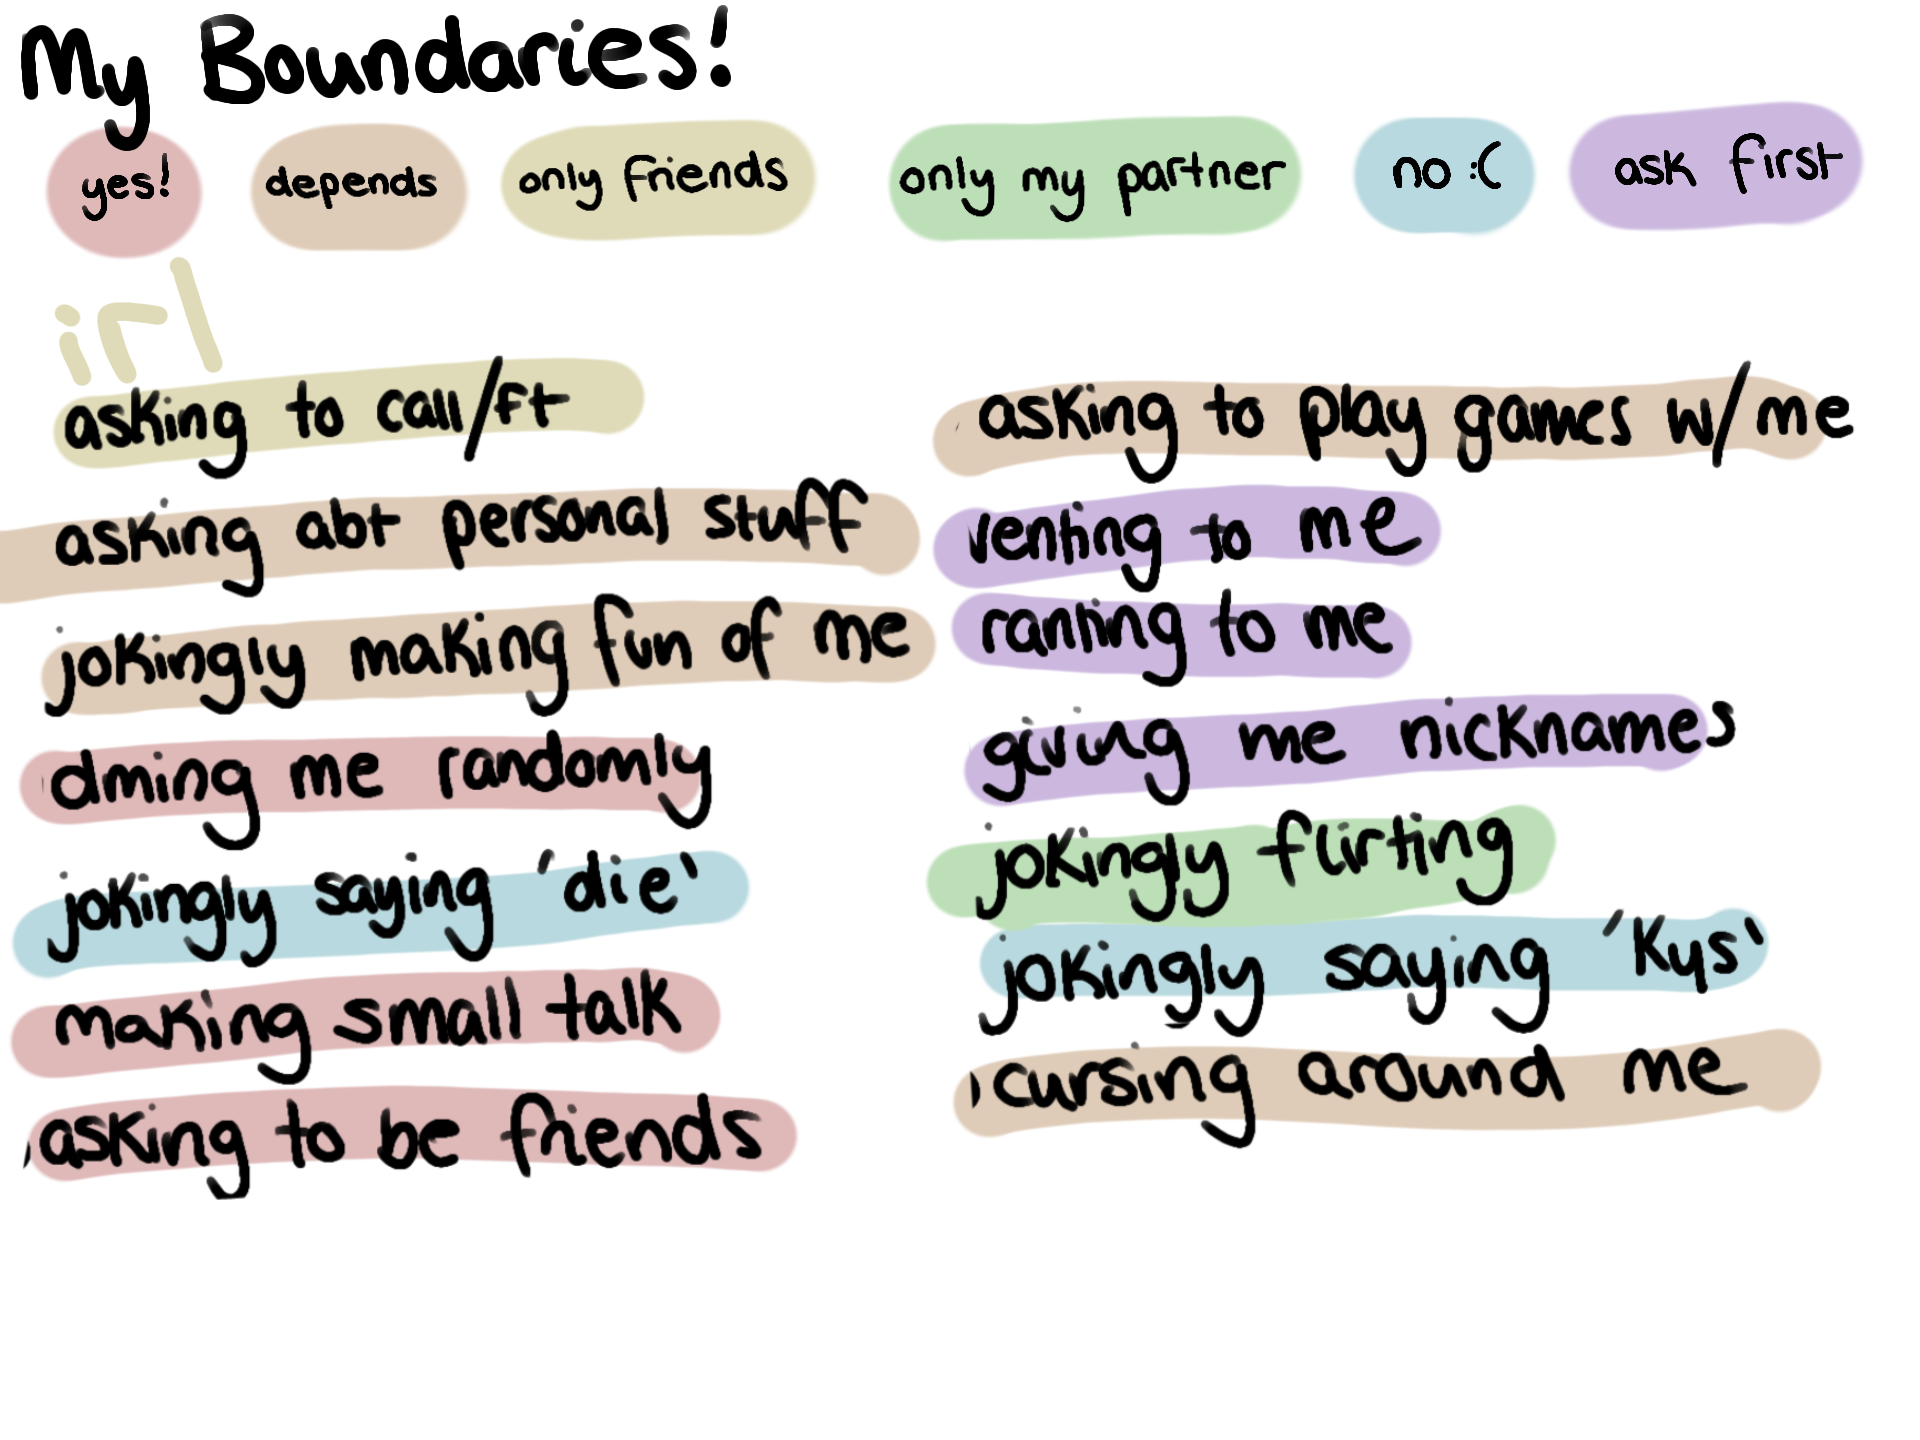 My Boundaries!
yes! depends only friends only my partner no :( ask first
irl
asking to call/ft
asking abt personal stuff
jokingly making fun of me
dming me randomly
jokingly saying 'die'
making small talk
asking to be friends
asking to play games w/me
venting to me
ranting to me
giving me nicknames
jokingly flirting
jokingly saying 'kys'
cursing around me